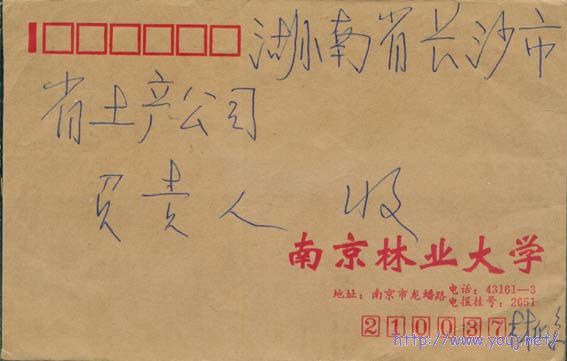 湖南省长沙市
省土产公司
负责人 收
南京林业大学
地址：南京市龙蟠路
电话：43161—3
电报挂号：2651
210037
http://www.youj.net/